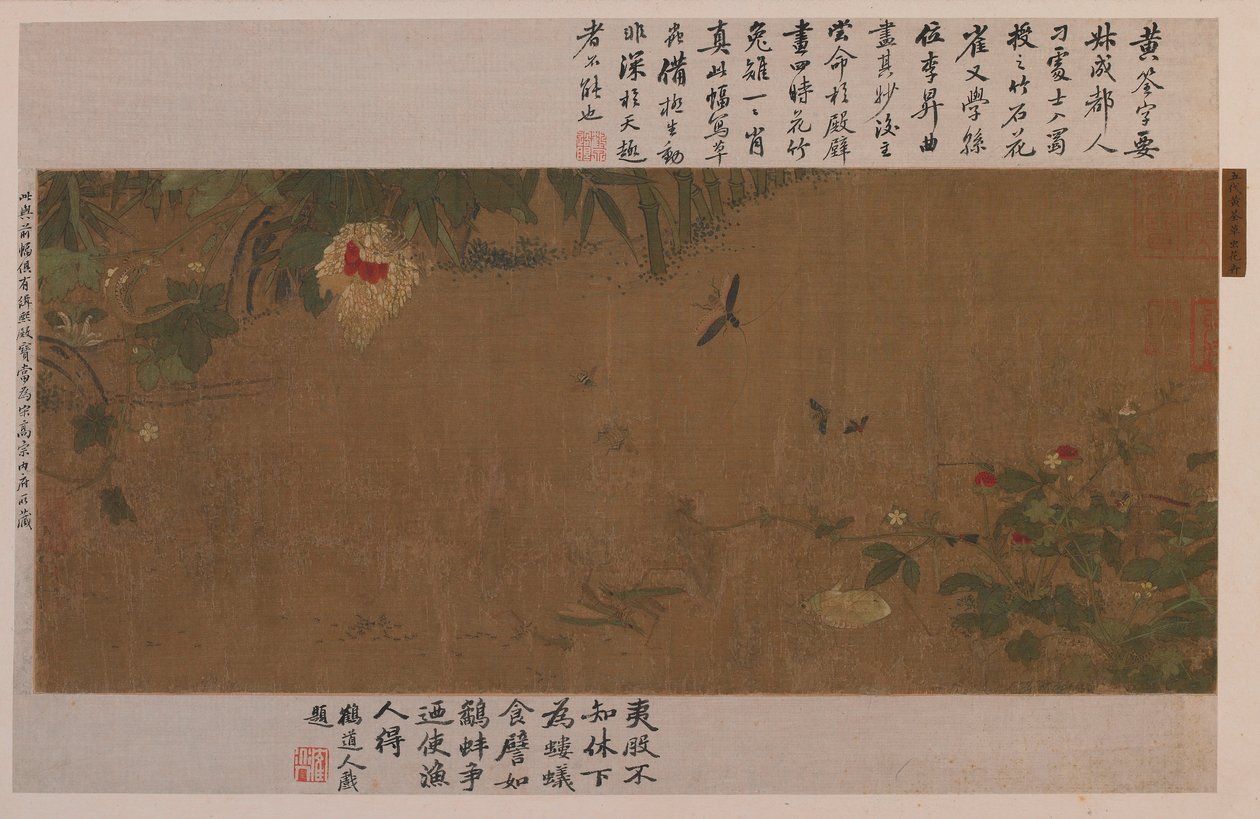 五代黄筌草虫花卉
黄筌字要
叔成都人
刁處士入蜀
授之竹石花
雀又學孫
位李昇曲
盡其妙後主
嘗命於殿壁
畫四時花竹
兔雉一一肖
真此幅寫草
蟲備極生動
非深於天趣
者不能也
夷股不
知休下
為螻蟻
食譬如
鷸蚌爭
迺使漁
人得
鶴道人戲
題
此與前幅俱有緝熙殿寶當為宋高宗内府所藏